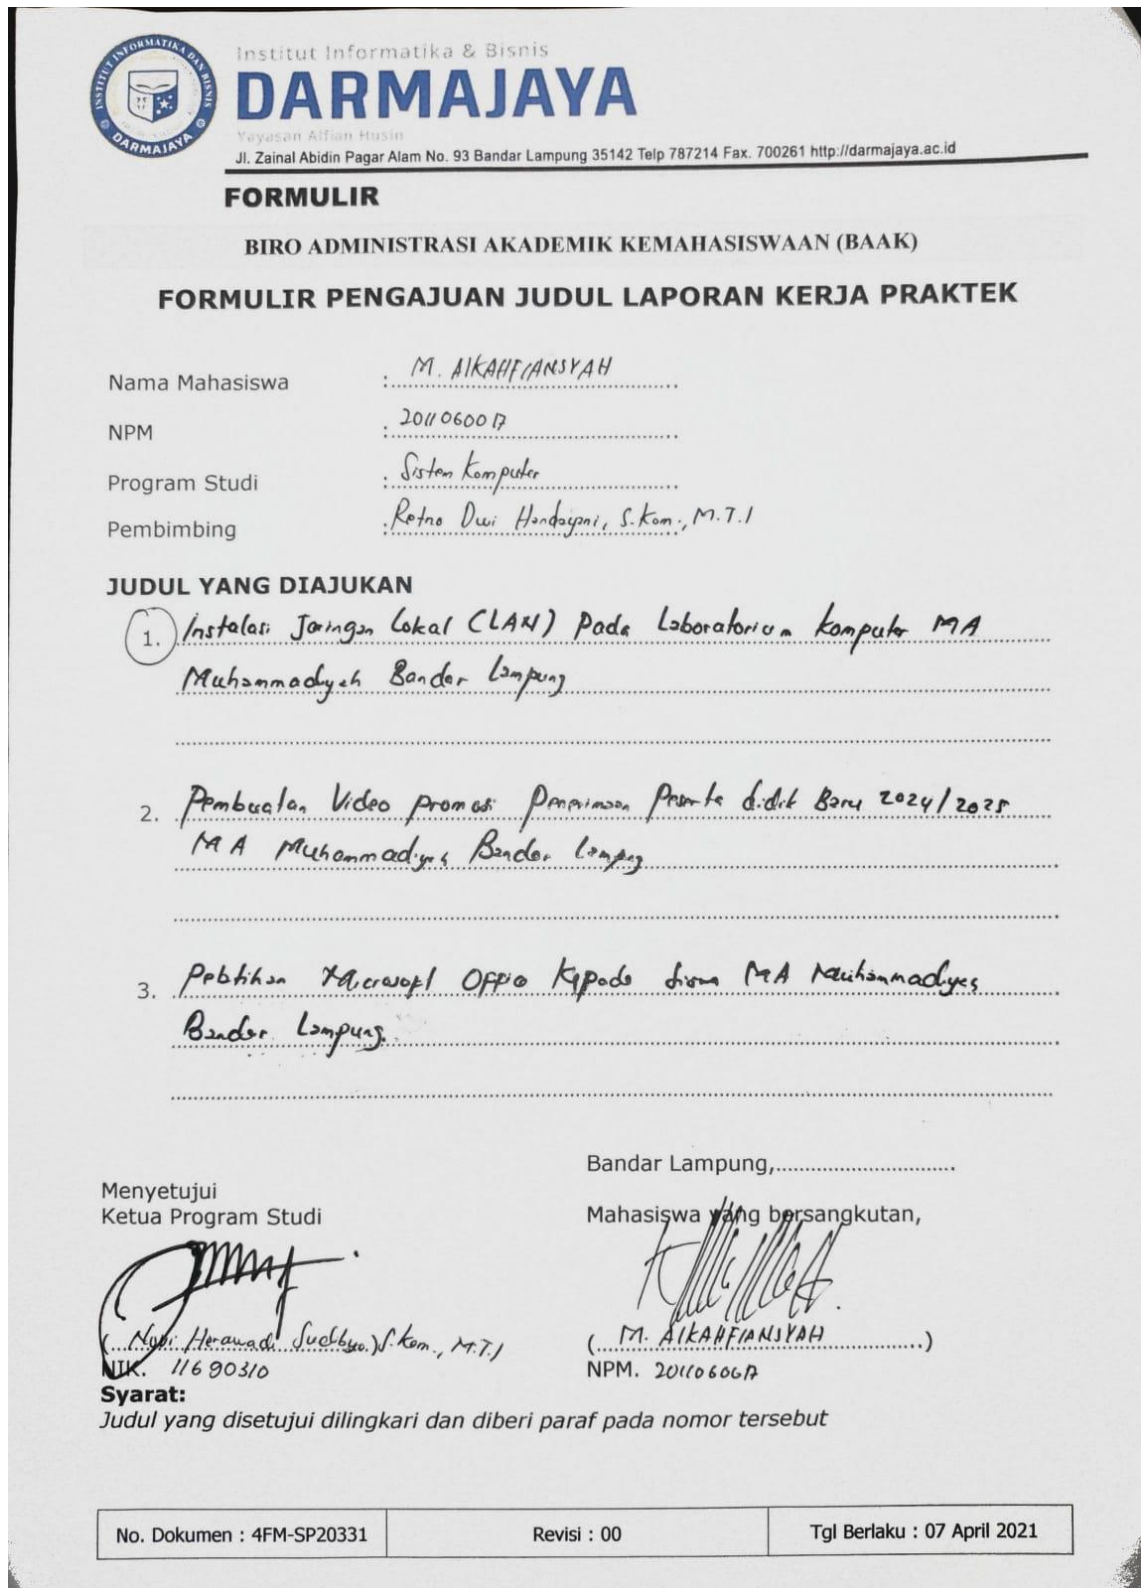 INSTITUT INFORMATIKA DAN BISNIS
DARMAJAYA
Institut Informatika & Bisnis
DARMAJAYA
Yayasan Alfian Husin
Jl. Zainal Abidin Pagar Alam No. 93 Bandar Lampung 35142 Telp 787214 Fax. 700261 http://darmajaya.ac.id
FORMULIR
BIRO ADMINISTRASI AKADEMIK KEMAHASISWAAN (BAAK)
FORMULIR PENGAJUAN JUDUL LAPORAN KERJA PRAKTEK
Nama Mahasiswa : M. AlKAHFIANSYAH
NPM : 2011060017
Program Studi : Sistem Komputer
Pembimbing : Retno Dwi Handayani, S.Kom., M.T.I
JUDUL YANG DIAJUKAN
1. Instalasi Jaringan Lokal (LAN) Pada Laboratorium Komputer MA
Muhammadiyah Bandar Lampung
2. Pembuatan Video Promosi Penerimaan Peserta didik Baru 2024/2025
MA Muhammadiyah Bandar Lampung
3. Pelatihan Microsoft Office Kepada siswa MA Muhammadiyah
Bandar Lampung.
Bandar Lampung,..............................
Menyetujui
Ketua Program Studi
Mahasiswa yang bersangkutan,
( Novi Herawadi Sudibyo.) S.Kom., M.T.I
( M. AlKAHFIANSYAH )
NIK. 11690310
NPM. 2011060017
Syarat:
Judul yang disetujui dilingkari dan diberi paraf pada nomor tersebut
No. Dokumen : 4FM-SP20331 Revisi : 00 Tgl Berlaku : 07 April 2021